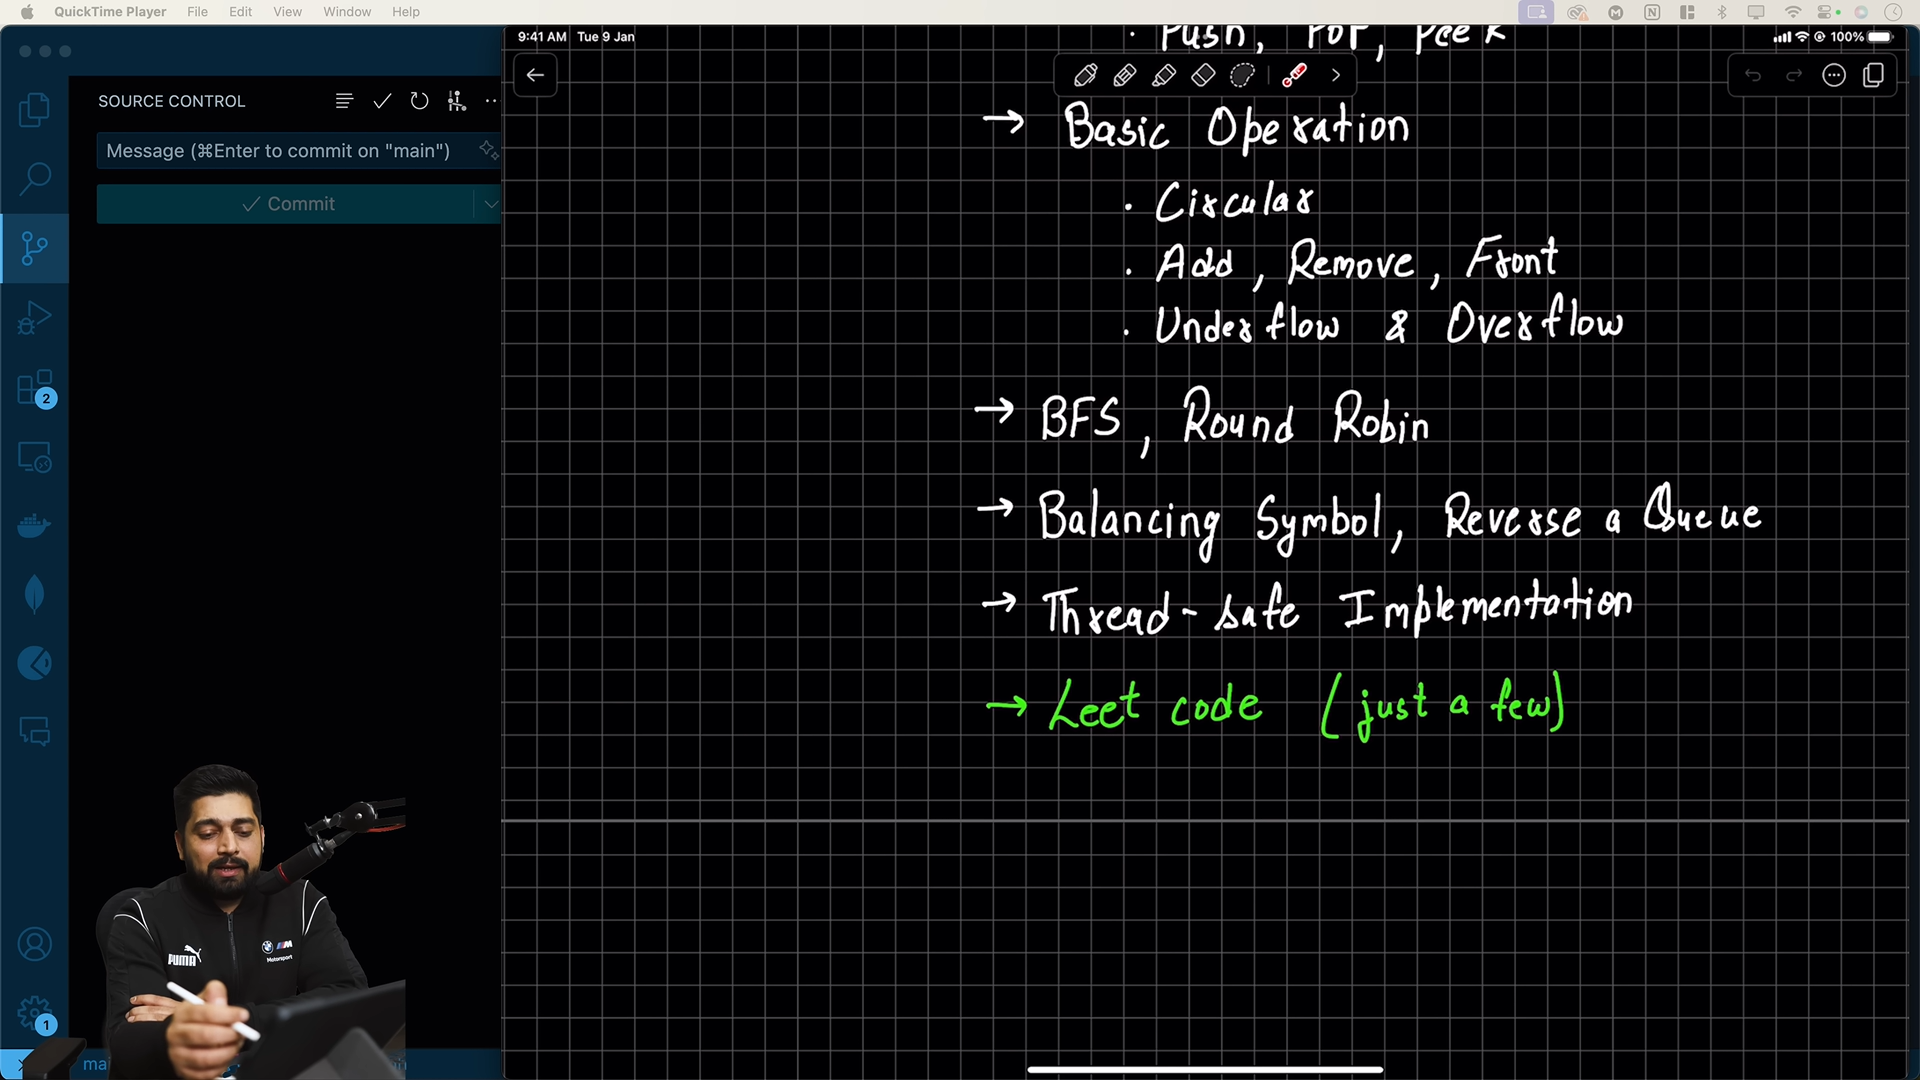 QuickTime Player File Edit View Window Help
9:41 AM Tue 9 Jan
100%
SOURCE CONTROL
Message (⌘Enter to commit on "main")
Commit
2
1
PUMA
Motorsport
· Push, Pop, Peek
→ Basic Operation
· Circular
· Add, Remove, Front
· Underflow & Overflow
→ BFS, Round Robin
→ Balancing Symbol, Reverse a Queue
→ Thread-safe Implementation
→ Leet code (just a few)